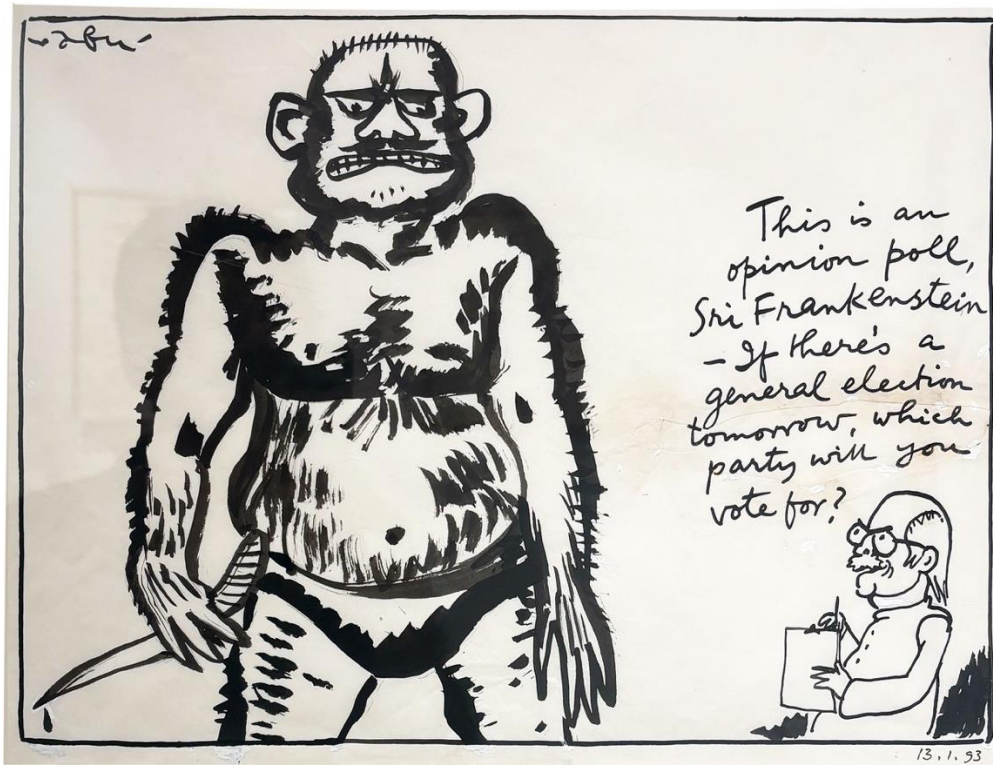 abu
This is an
opinion poll,
Sri Frankenstein
– If there's a
general election
tomorrow, which
party will you
vote for?
13.1.93